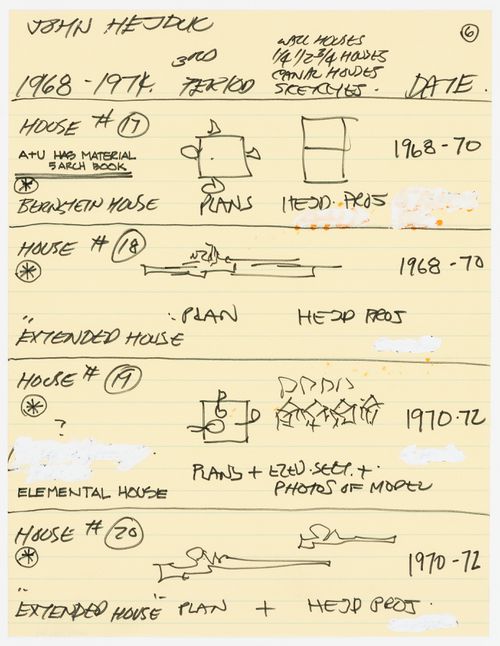 JOHN HEJDUK
6
WALL HOUSES
1/4 1/2 3/4 HOUSES
CANAL HOUSES
SKETCHES.
3RD
1968 - 1974. PERIOD DATE.
HOUSE # 17
1968 - 70
A+U HAS MATERIAL
5 ARCH BOOK
*
BERNSTEIN HOUSE PLANS HEJD. PROJ
HOUSE # 18
1968 - 70
*
PLAN HEJD PROJ
EXTENDED HOUSE
HOUSE # 19
1970-72
*
?
PLANS + ELEV. SECT. +
PHOTOS OF MODEL
ELEMENTAL HOUSE
HOUSE # 20
1970 - 72
*
"EXTENDED HOUSE" PLAN + HEJD PROJ.